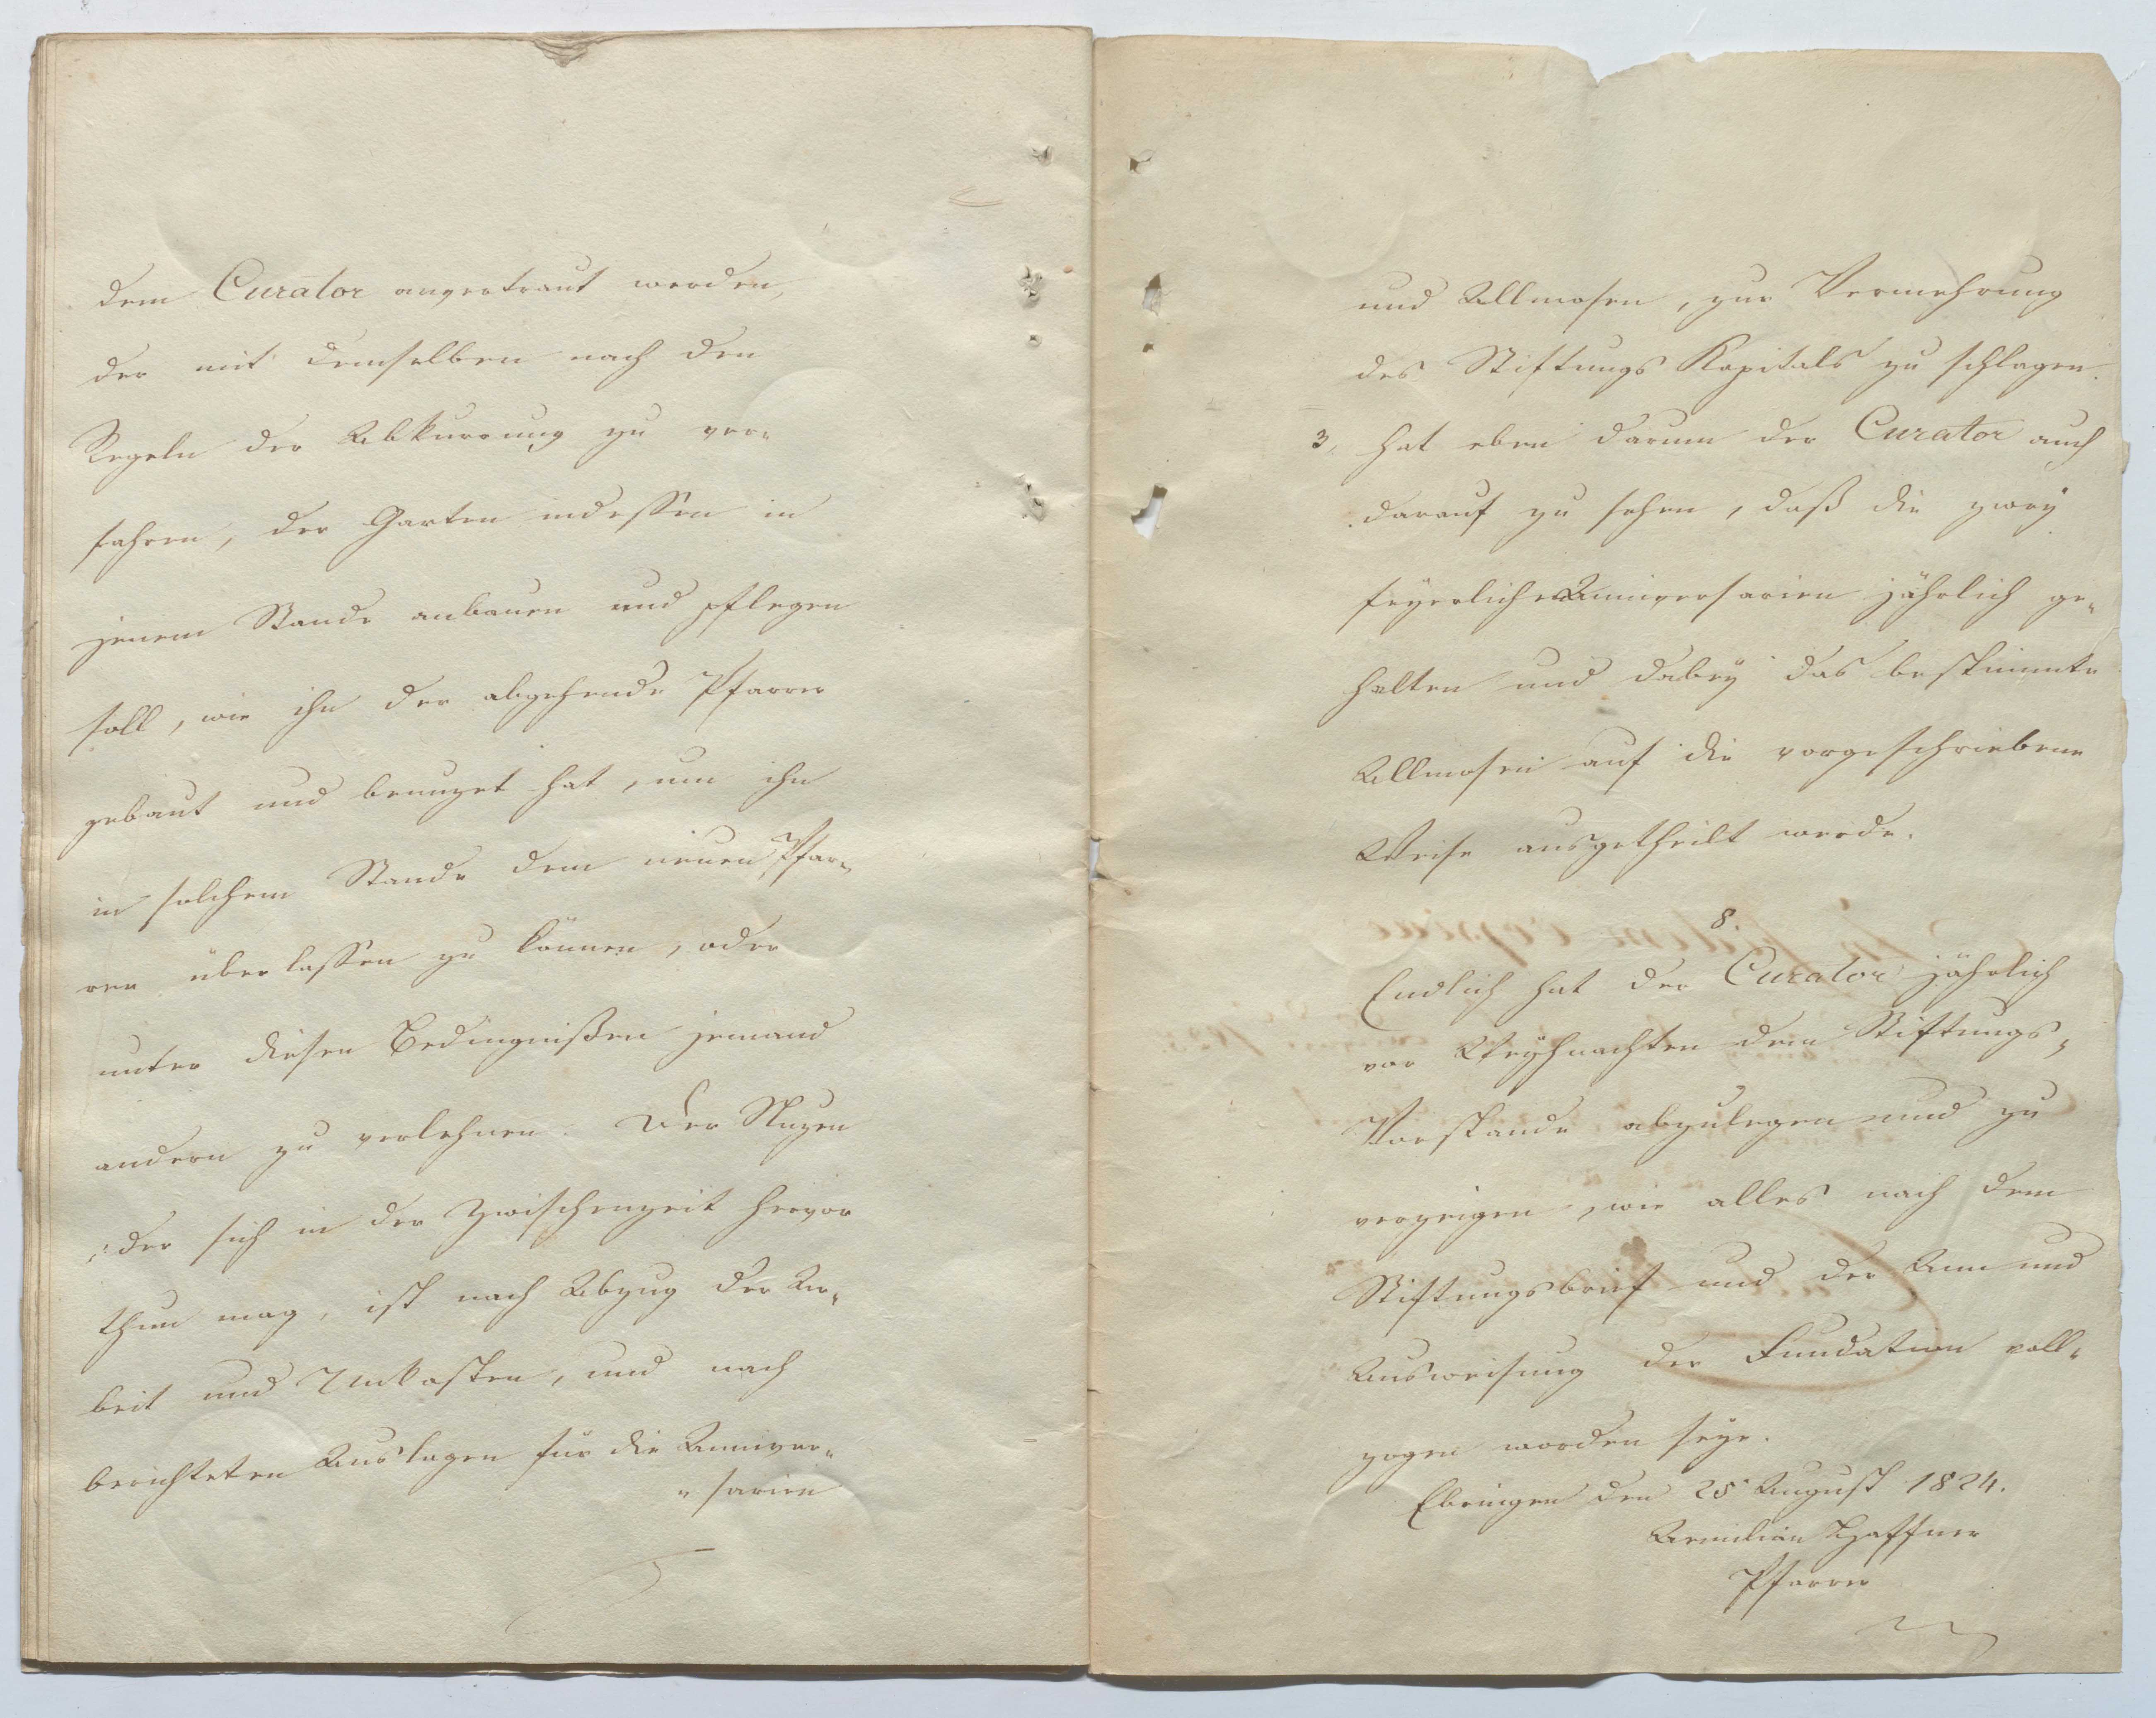 dem Curator anvertraut werden,
der mit demselben nach den
Regeln der Abkurrung zu ver-
fahren, der Garten indessen in
jenem Stande anbauen und pflegen
soll, wie ihn der abgehende Pfarrer
gebaut und benuzet hat, um ihn
in solchem Stande dem neuen Pfar-
rer überlassen zu können, oder
unter diesen Bedingnißen jemand
andern zu verlehnen. Der Nuzen
der sich in der Zwischenzeit hervor
thun mag, ist nach Abzug der Ar-
beit und Unkosten, und nach
berichteten Auslagen für die Anniver-
"sarien
und Allmosen, zur Vermehrung
des Stiftungs Kapitals zu schlagen.
3, hat eben darum der Curator auch
darauf zu sehen, daß die zwey
feyerlichen Anniversarien jährlich ge-
halten und dabey das bestimmte
Allmosen auf die vorgeschriebene
Weise ausgetheilt werde.
8
Endlich hat der Curator jährlich
vor Weyhnachten dem Stiftungs-
Vorstande abzulegen und zu
verzeigen, wie alles nach dem
Stiftungsbrief und der An und
Ausweisung der Fundation voll-
zogen worden seye.
Ebringen den 28 August 1824.
Aemilian Haffner
Pfarrer